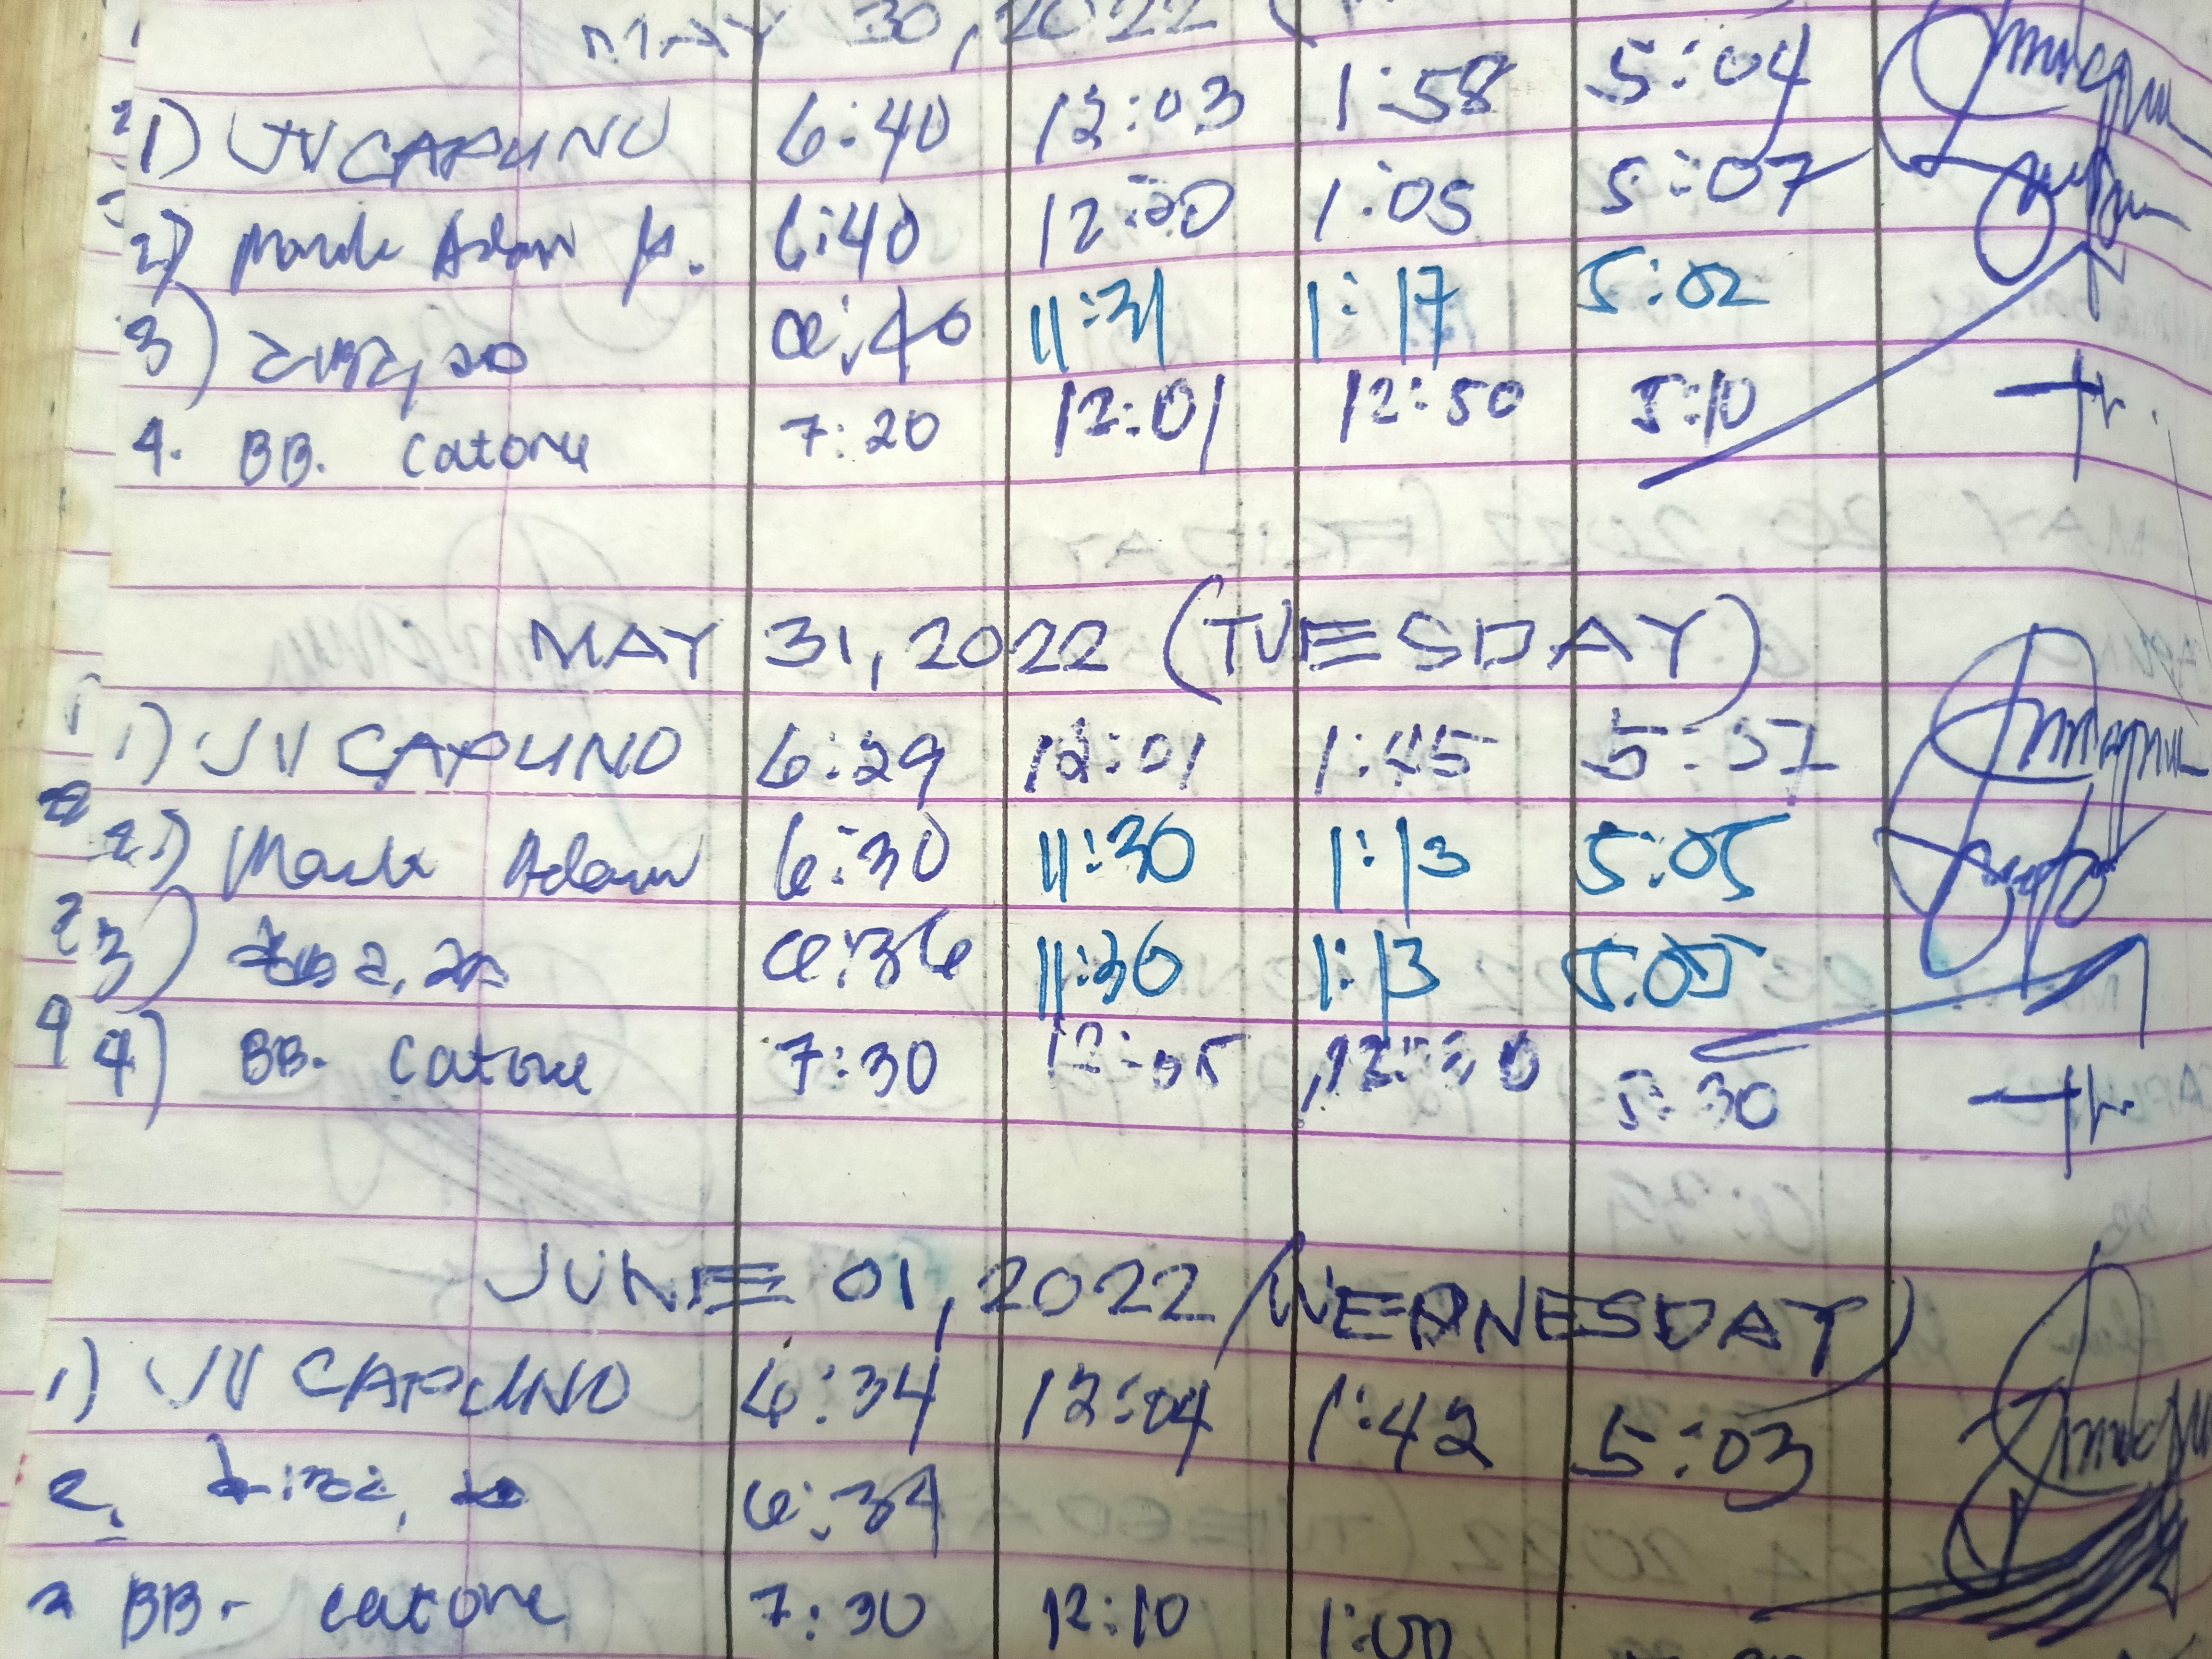 MAY 30, 2022 (
1) JV CAPUNO 6:40 12:03 1:58 5:04
2) Mark Adam 6:40 12:20 1:05 5:07
3) 6:40 11:31 1:17 5:02
4. BB. Catone 7:20 12:01 12:50 5:10
MAY 31, 2022 (TUESDAY)
1) JV CAPUNO 6:29 12:01 1:45 5:07
2) Mark Adam 6:30 11:30 1:13 5:05
3) 6:36 11:30 1:13 5:05
4) BB. Catone 7:30 12:05 5:30
JUNE 01, 2022 (WEDNESDAY)
1) JV CAPUNO 6:34 12:04 1:42 5:03
2. 6:34
BB. Catone 7:30 12:10 1:00